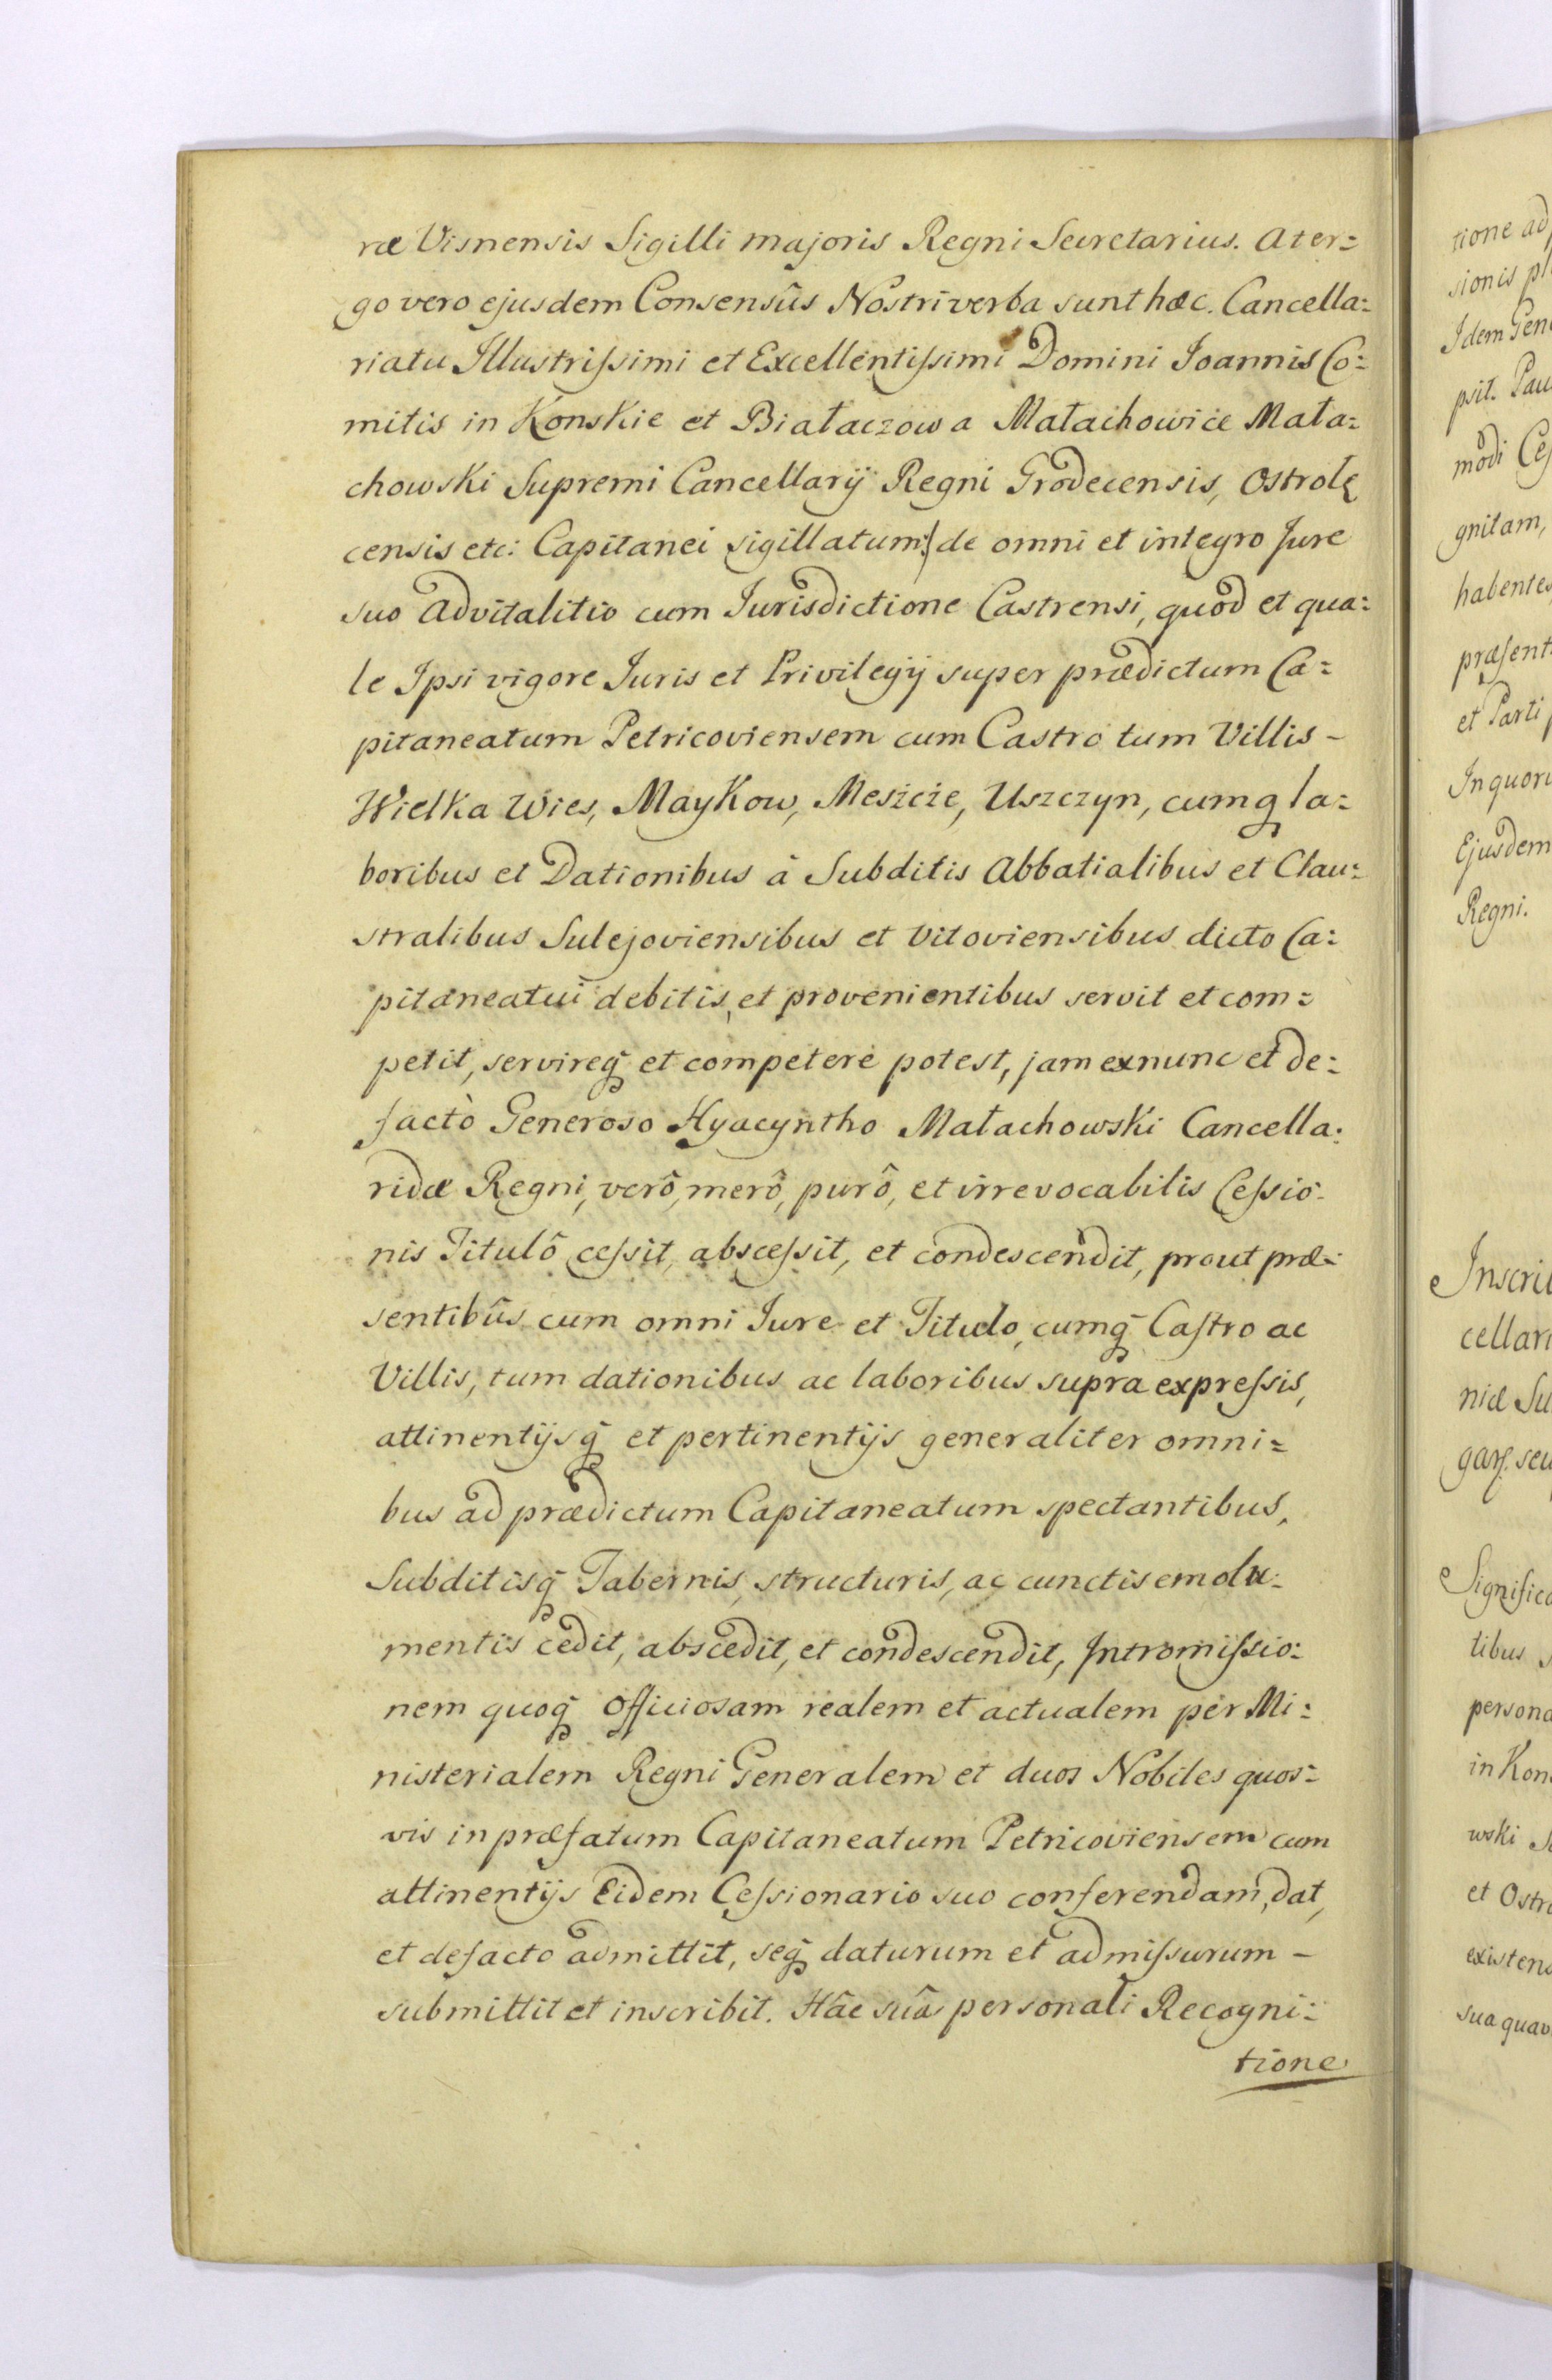 ræ Visnensis Sigilli majoris Regni Secretarius. A ter=
go vero ejusdem Consensûs Nostri verba sunt hæc. Cancella=
riatu Illustrissimi et Excellentissimi Domini Joannis Co=
mitis in Konskie et Białaczow a Małachowice Mała=
chowski Supremi Cancellarÿ Regni Grodecensis, Ostrolę
censis etc: Capitanei sigillatum:/ de omni et integro Jure
suo advitalitio cum Jurisdictione Castrensi, quod et qua=
le Ipsi vigore Juris et Privilegÿ super prædictum Ca=
pitaneatum Petricoviensem cum Castro tum Villis –
Wielka Wies, Maykow, Meszcze, Uszczyn, cumq̃ la=
boribus et Dationibus â Subditis Abbatialibus et Clau=
stralibus Sulejoviensibus et Vitoviensibus dicto Ca=
pitaneatui debitis, et provenientibus servit et com=
petit, servireq̃ et competere potest, jam ex nunc et de=
factò Generoso Hyacyntho Małachowski Cancella=
ridæ Regni, verô, merô, purô, et irrevocabilis Cessio=
nis Titulô cessit, abscessit, et condescendit, prout præ=
sentibûs cum omni Jure et Titulo, cumq̃ Castro ac
Villis, tum dationibus ac laboribus supra expressis,
attinentÿsq̃ et pertinentÿs generaliter omni=
bus ad prædictum Capitaneatum spectantibus,
Subditisq̃ Tabernis, structuris, ac cunctis emolu=
mentis cedit, abscedit, et condescendit, Intromissio=
nem quoq̃ Officiosam realem et actualem per Mi=
nisterialem Regni Generalem et duos Nobiles quos=
vis in præfatum Capitaneatum Petricoviensem cum
attinentÿs Eidem Cessionario suo conferendam, dat,
et defacto admittit, seq̃ daturum et admissurum –
submittit et inscribit. Hâc suâ personali Recogni=
tione
tione ad
sionis pl
Idem Gen
psit. Pau
modi Ces
gnitam,
habentes
præsent
et Parti p
In quoru
Ejusdem
Regni.
Inscri
cellari
niæ Su
seu
Significa
tibus
persona
in Kon
wski
et Ostro
existens
sua quav